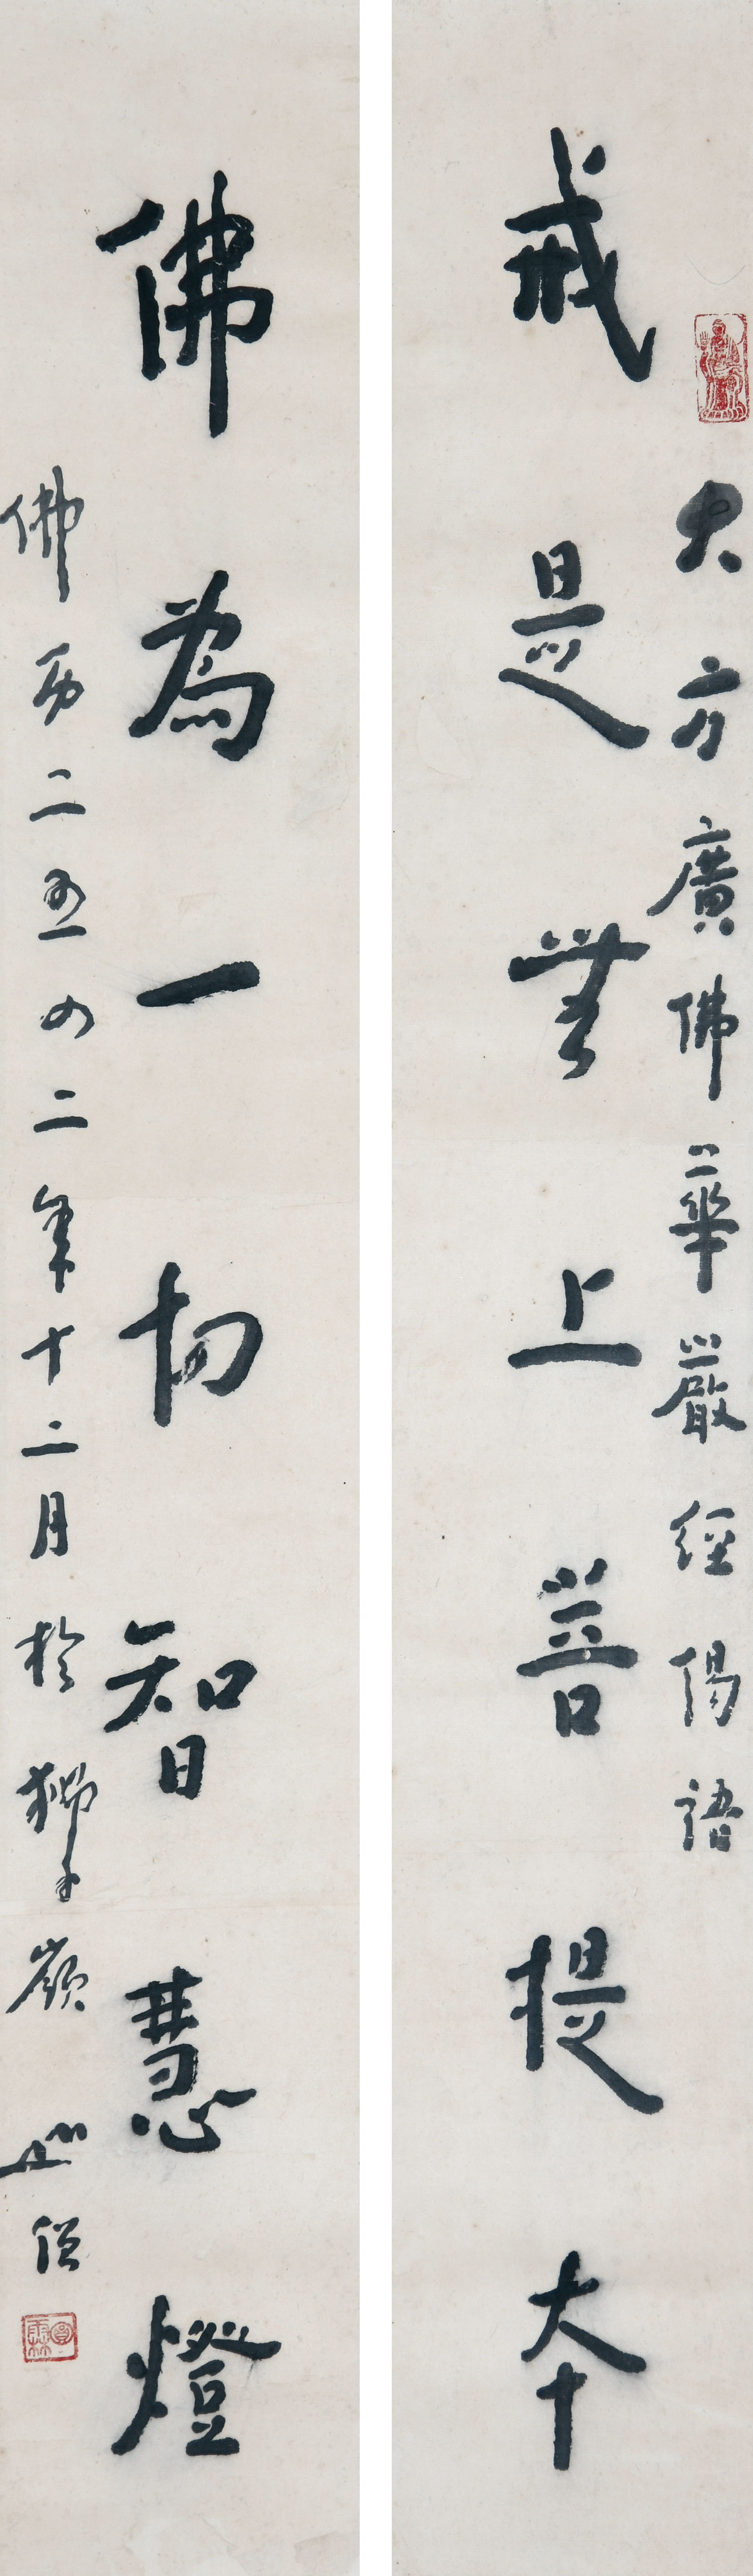 大方廣佛華嚴經偈語
戒是無上菩提本
佛為一切智慧燈
佛曆二五四二年十二月於獅子嶺
僧